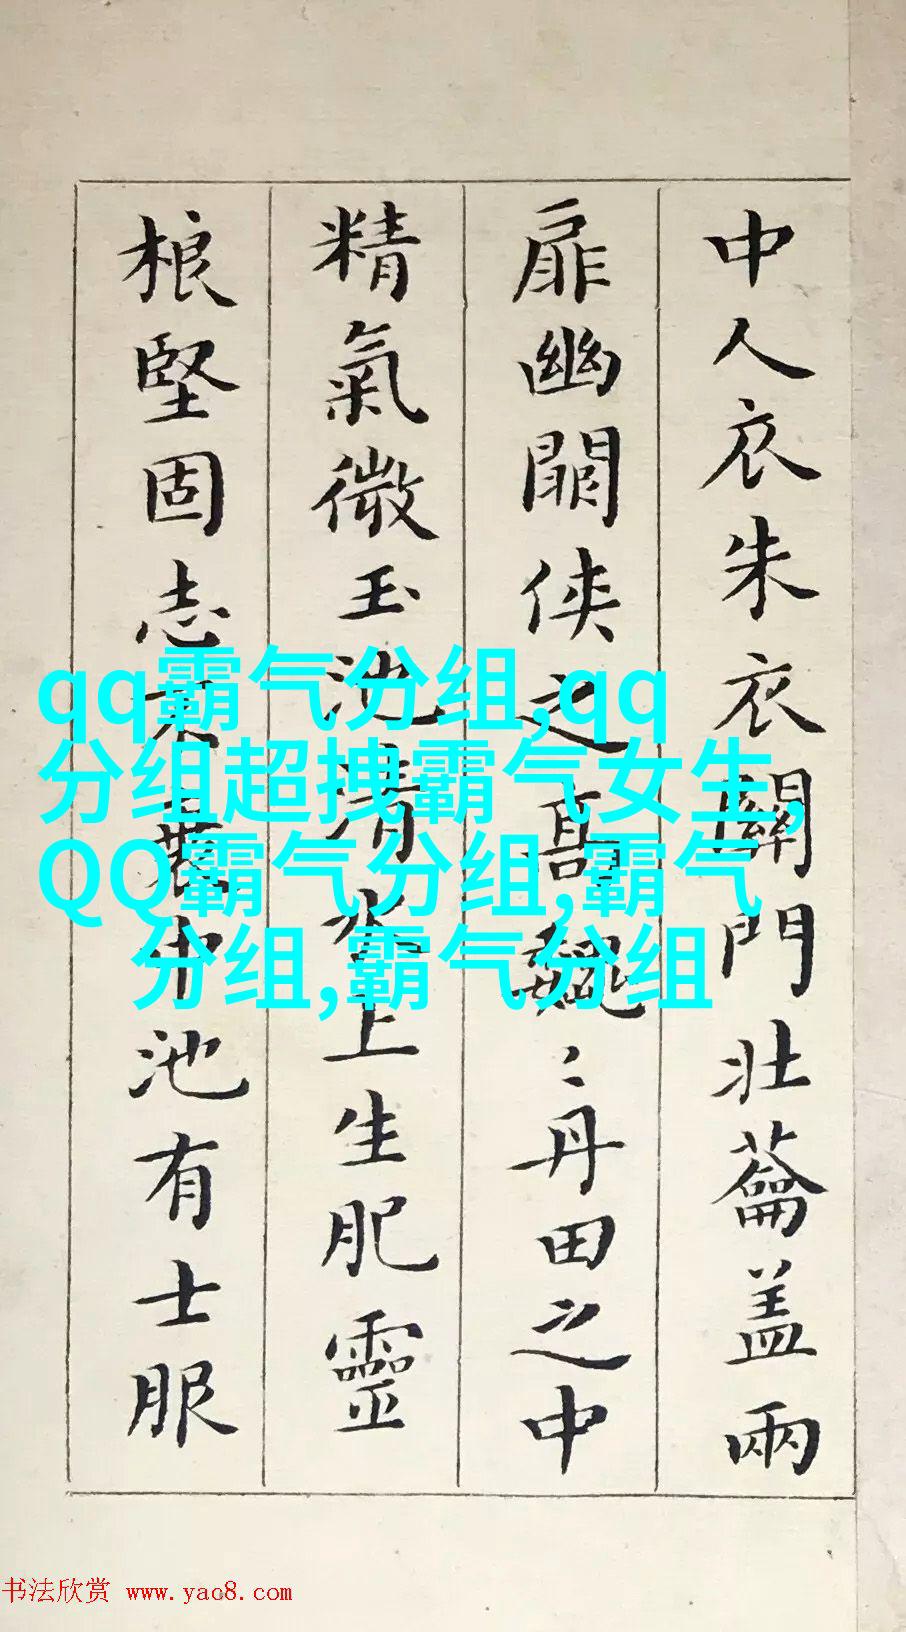 中人衣朱衣關門壯蘥盖兩
扉幽闗俠之髙巍〻丹田之中
精氣微玉池清水上生肥靈
根堅固志不衰中池有士服
qq霸气分组,qq
分组超拽霸气女生,
QQ霸气分组,霸气
分组,霸气分组
书法欣赏 www.yac8.com